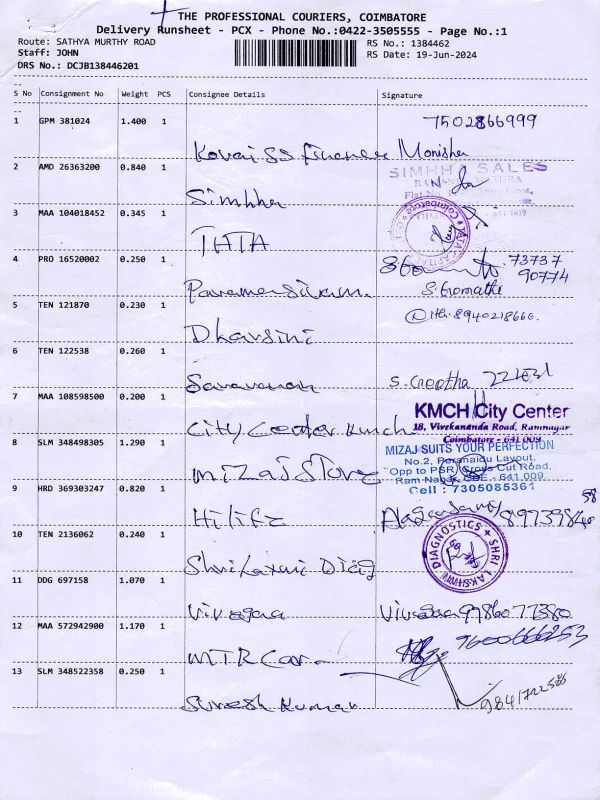 THE PROFESSIONAL COURIERS, COIMBATORE
Delivery Runsheet - PCX - Phone No.:0422-3505555 - Page No.:1
Route: SATHYA MURTHY ROAD
RS No.: 1384462
Staff: JOHN
RS Date: 19-Jun-2024
DRS No.: DCJB138446201
S No Consignment No Weight PCS Consignee Details Signature
1 GPM 381024 1.400 1 7502866999
Kovai SS finance Monisha
2 AMD 26363200 0.840 1 SIMHHA SALES
Simhha
3 MAA 104018452 0.345 1
TATA
4 PRO 16520002 0.250 1 73737
90774
Paramasivam
5 TEN 121870 0.230 1 8940218666.
Dharsini
6 TEN 122538 0.260 1
Saravanan S. Geetha
7 MAA 108598500 0.200 1 KMCH City Center
18, Vivekananda Road, Ramnagar
City Center Kmch
Coimbatore - 641 009
8 SLM 348498305 1.290 1 MIZAJ SUITS YOUR PERFECTION
No.2, Peranaidu Layout,
Opp to PSR, Cross Cut Road,
Mizaj Store
Ram Nagar, CBE - 641 009
9 HRD 369303247 0.820 1 Cell : 7305085361
Hilife
10 TEN 2136062 0.240 1 DIAGNOSTICS SHRI LAKSHMI
Shri Laxmi Diag
11 DDG 697158 1.070 1
Vivagaa 9786071380
12 MAA 572942900 1.170 1 9600666253
MTR Car
13 SLM 348522358 0.250 1
Suresh Kumar